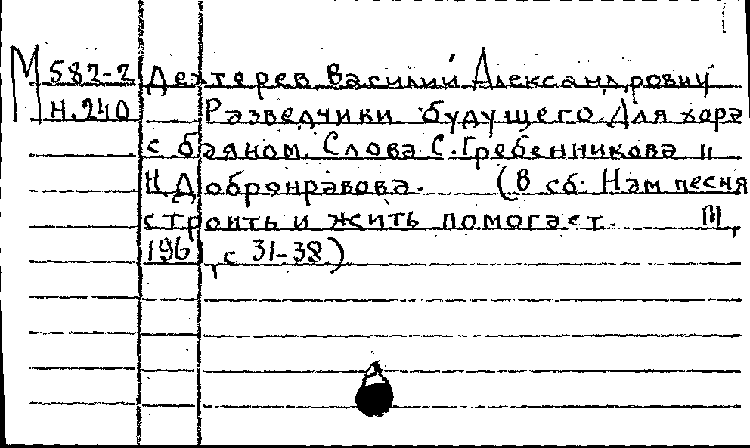 М 582-2 Дехтерев Василий Александрович
Н.240 Разведчики будущего. Для хора
с баяном. Слова С. Гребенникова и
Н. Добронравова. (В сб. Нам песня
строить и жить помогает. М,
1961, с 31-38)